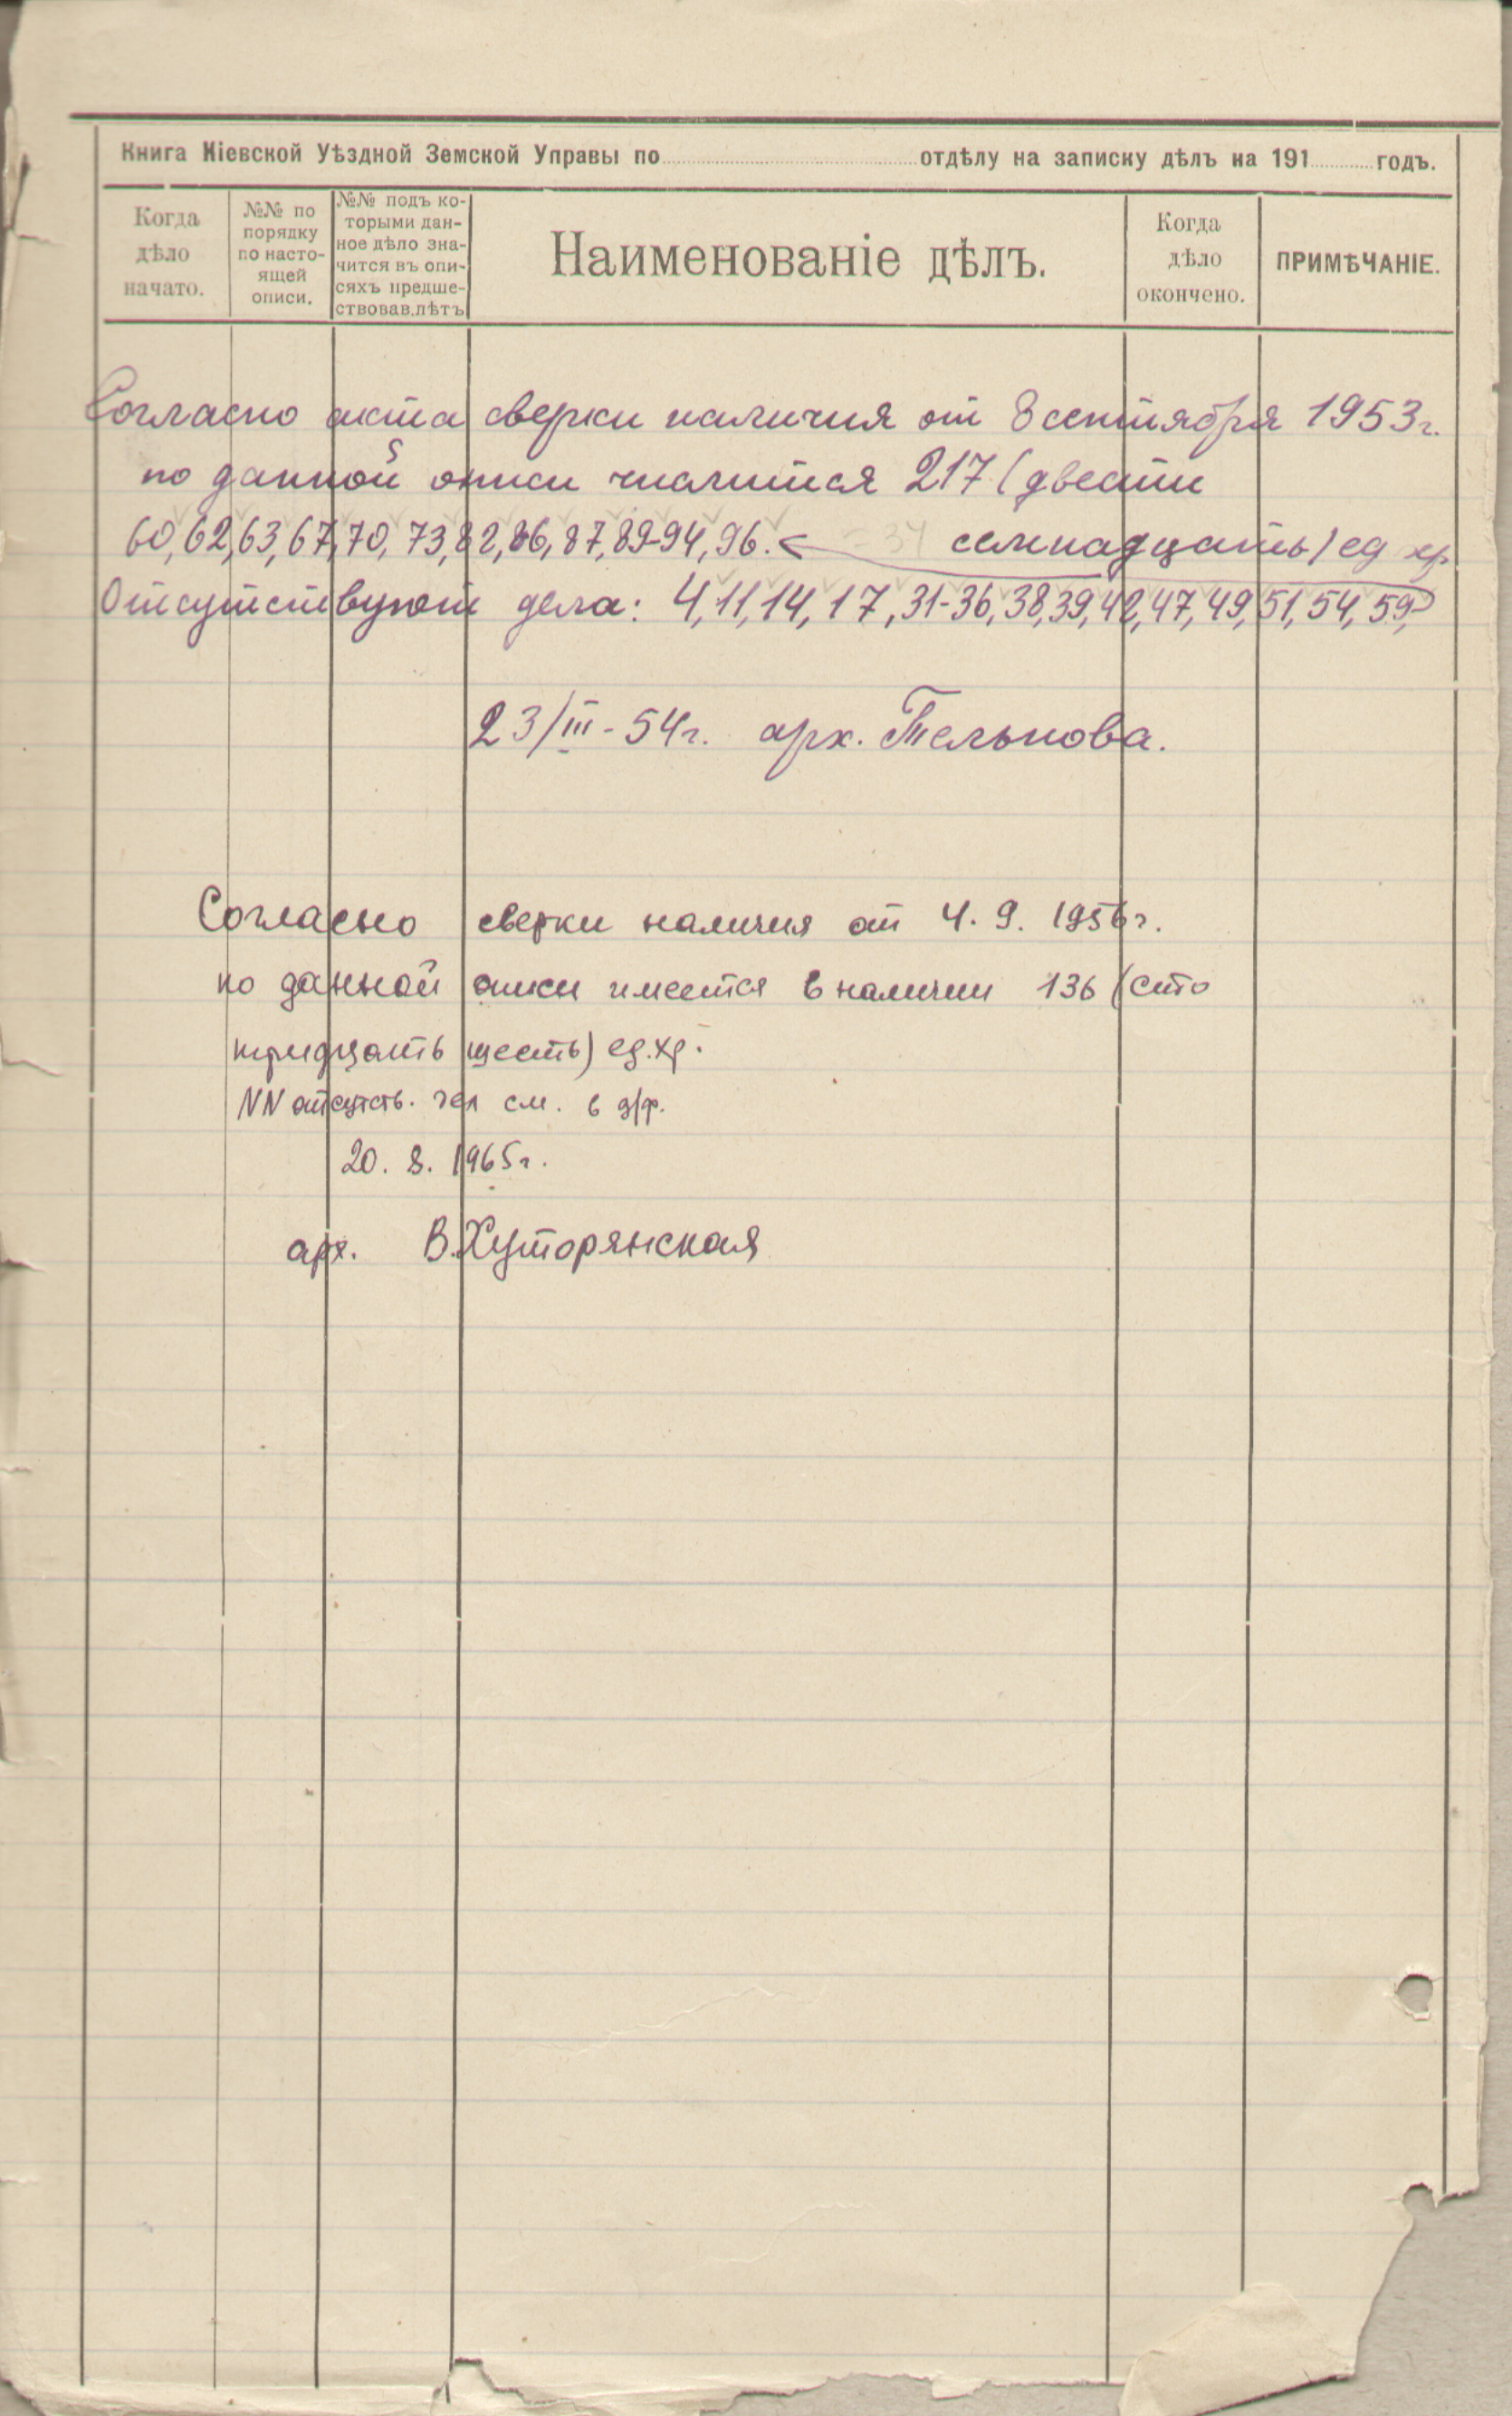 Книга Кіевской Уѣздной Земской Управы по отдѣлу на записку дѣлъ на 191 годъ.
Когда
дѣло
начато.
№№ по
порядку
по насто-
ящей
описи.
№№ подъ ко-
торыми дан-
ное дѣло зна-
чится въ опи-
сяхъ предше-
ствовав.лѣтъ
Наименованіе дѣлъ.
Когда
дѣло
окончено.
ПРИМѢЧАНІЕ.
Согласно акта сверки наличия от 8 сентября 1953г.
по данной описи числится 217 (двести
60, 62, 63, 67, 70, 73, 82, 86, 87, 89-94, 96. семнадцать) ед хр
Отсутствуют дела: 4, 11, 14, 17, 31-36, 38, 39, 42, 47, 49, 51, 54, 59,
23/III-54г. арх. Тельнова.
Согласно сверки наличия от 4. 9. 1956г.
по данной описи имеется в наличии 136 (сто
тридцать шесть) ед.хр.
NN отсутств. дел см. в д/ф.
20. 8. 1965г.
арх. В.Хуторянская